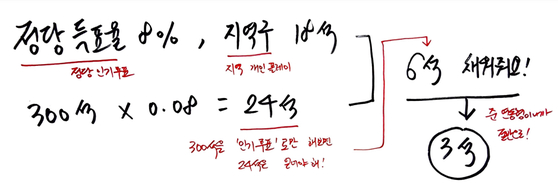 정당 득표율 8%, 지역구 18석
정당 인기투표
지역 개인 플레이
300석 × 0.08 = 24석
300석을 '인기투표'로만 해보면
24석은 얻어야 해!
6석 채워줘요!
준 연동형이니까
절반으로!
3석